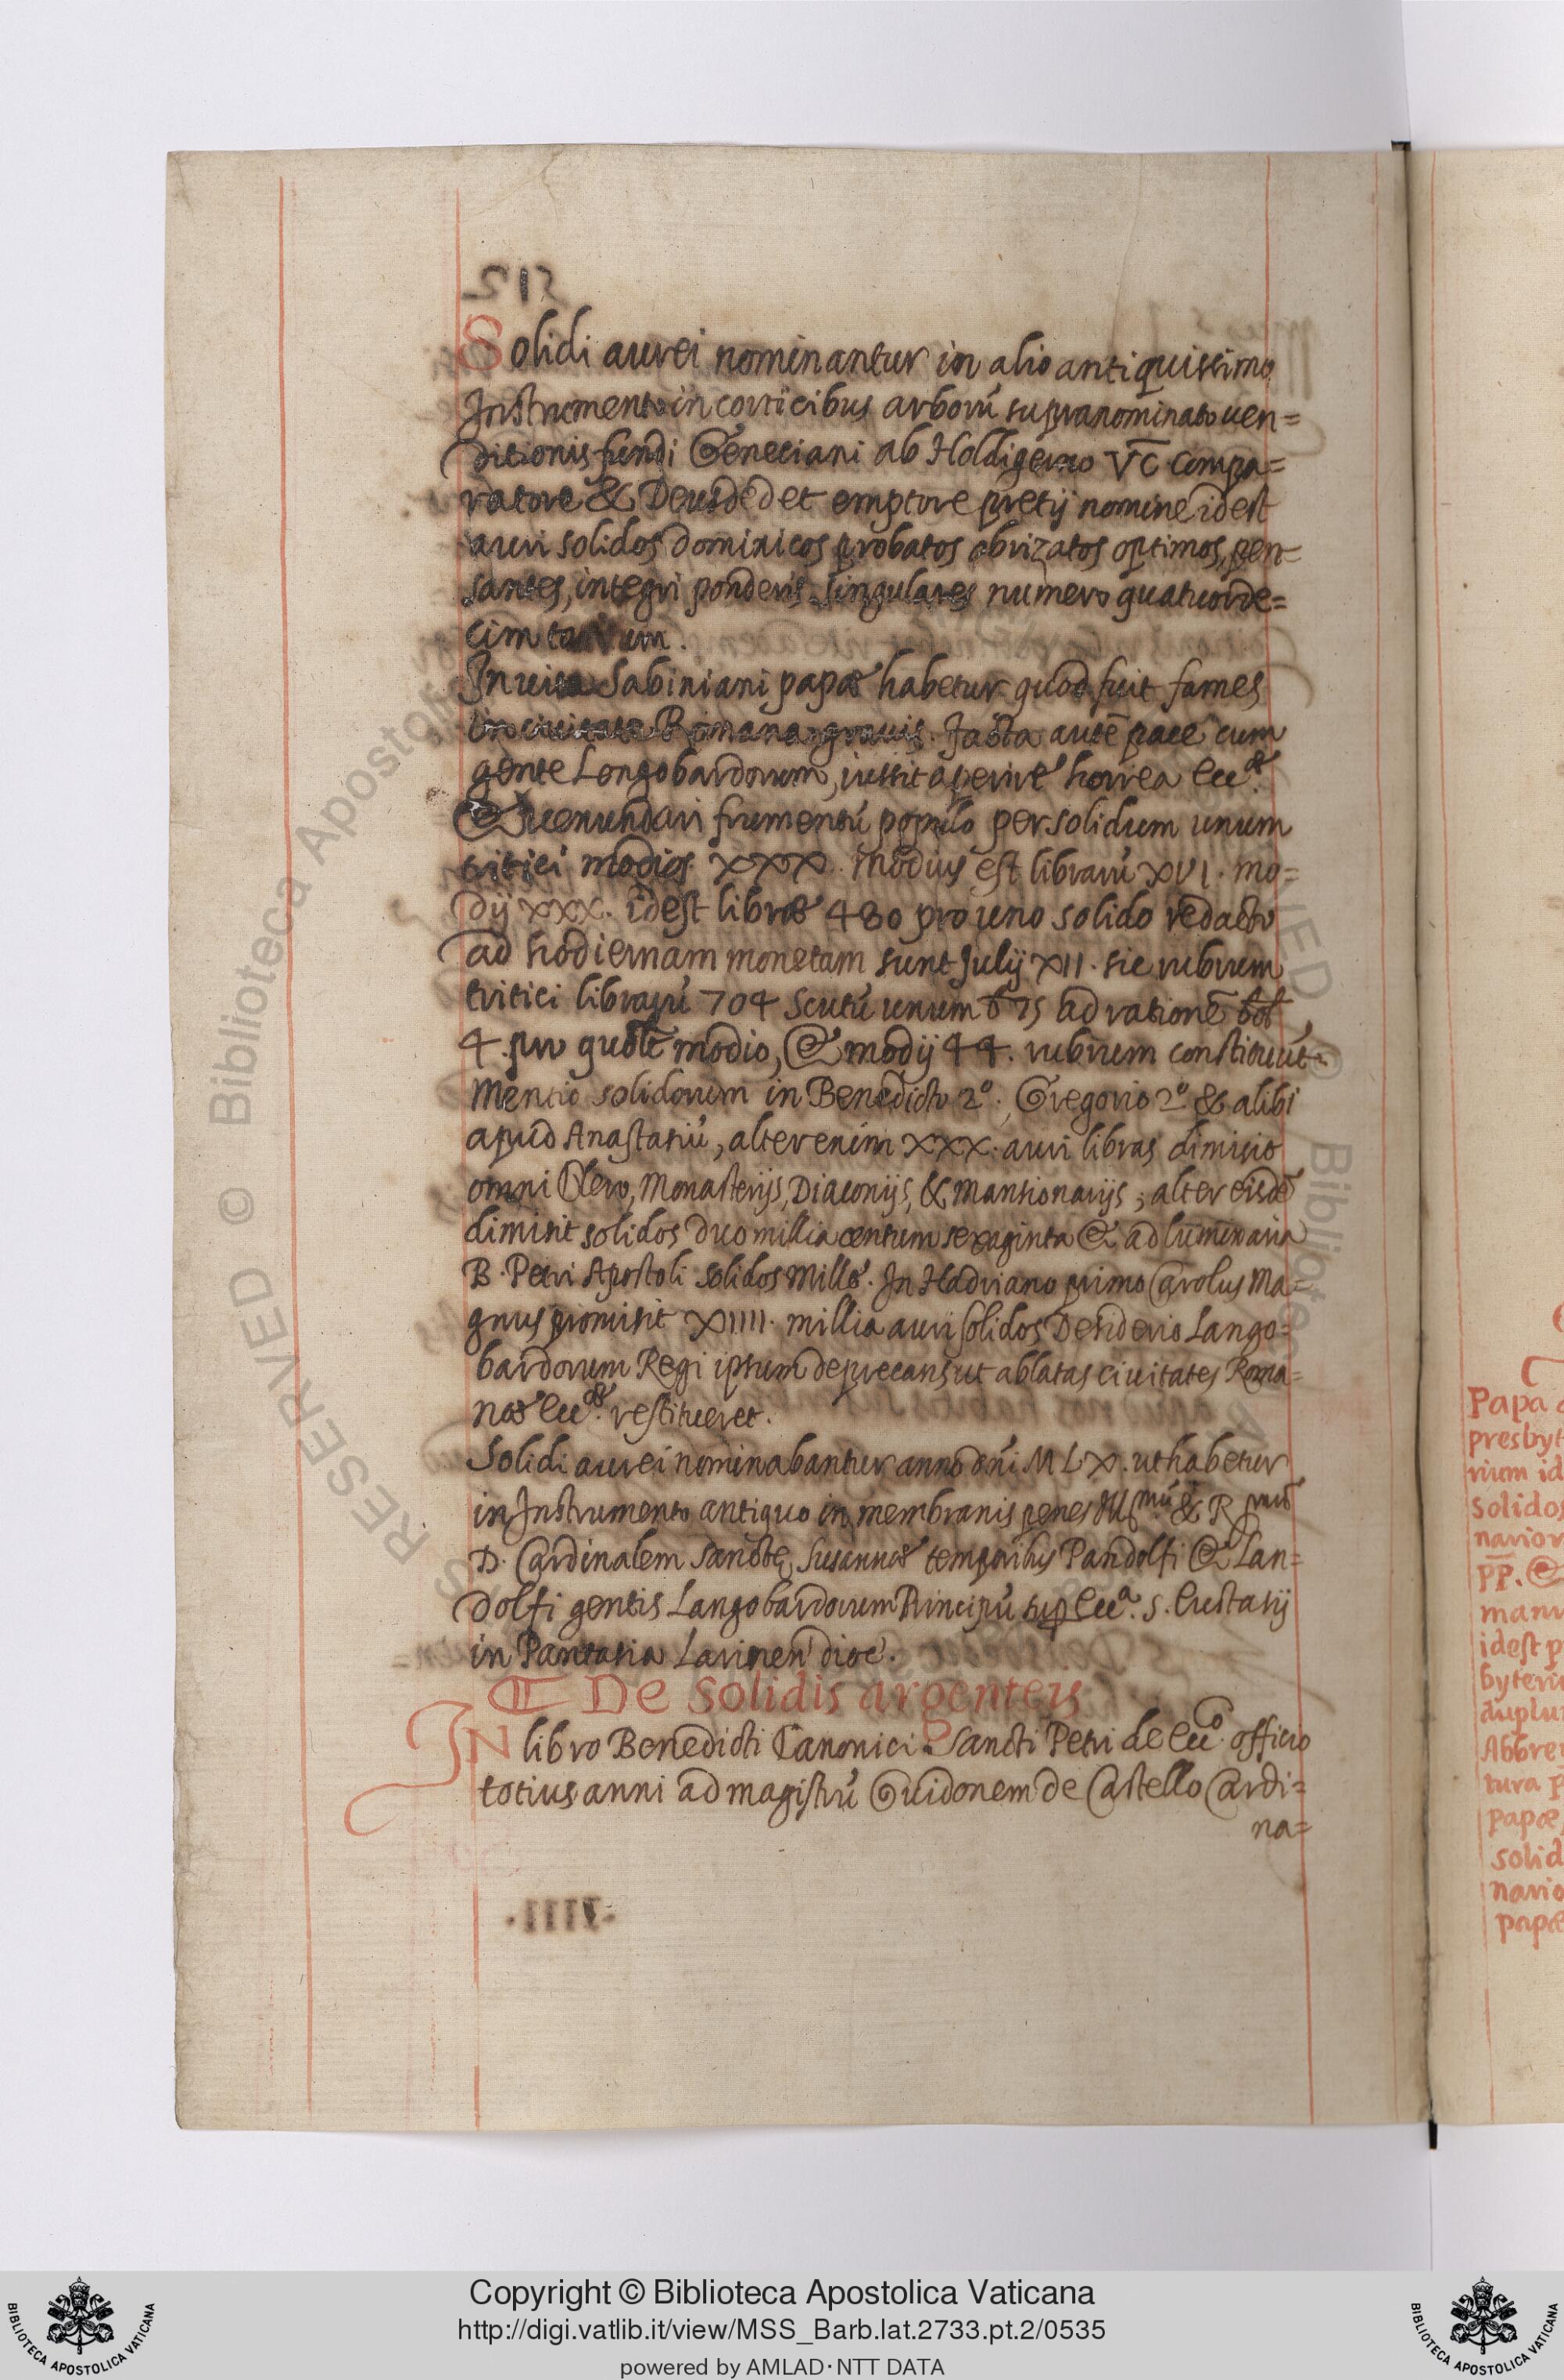 Solidi aurei nominantur in alio antiquissimo
Instrumento in corticibus arborū supranominato uen=
ditionis fundi Geneciani ab Holdigerno V̄C̄ Compa=
ratore & Deusdedet emptore pretij nomine idest
auri solidos dominicos probatos obrizatos optimos, pen=
santes, integri ponderis singulares numero quatuorde=
cim tantum.
In uita Sabiniani papæ habetur quod fuit fames
in ciuitate Romana grauis. Facta autē pace cum
gente Longobardorum, iussit aperire horrea Ecc.æ
& uenundari frumentū populo per solidum unum
tritici modios XXX. Modius est librarū XVI. mo=
dij XXX. idest libræ 480 pro uno solido redacto
ad hodiernam monetam sunt Julij XII. sic rubrum
tritici librarū 704 Scutū unum 75 ad rationē bol
4. pro quolt modio, & modij 44. rubrum constituūt.
Mentio solidorum in Benedicto 2º. Gregorio 2º & alibi
apud Anastasiū, alter enim XXX. auri libras dimisit
omni Clero, Monasterijs, Diaconijs, & Mansionarijs; alter eisdē
dimisit solidos duo millia centum sexaginta & ad luminaria
B. Petri Apostoli solidos mille. In Hadriano primo Carolus Ma=
gnus promisit XIIII. millia auri solidos Desiderio Lango=
bardorum Regi ipsum deprecans ut ablatas ciuitates Roma=
næ Ecc.æ restitueret.
Solidi aurei nominabantur anno dn̄i MLX. ut habetur
in Instrumento antiquo in membranis penes Ill.mū & R.mū
D. Cardinalem Sanctę Susannæ temporibus Pandolfi & Lan=
dolfi gentis Langobardorum Principū sup Ecc.a S. Eustasij
in Pantasia Larinen̄ dioc.
De solidis argenteis
IN libro Benedicti Canonici Sancti Petri de Ecc.co officio
totius anni ad magistrū Guidonem de Castello Cardi=
na=
Papa
presbyt
rium id
solidos
narior
PP. &
manu
idest p
byteri
duplu
Abbre
tura p
papæ
solid
nario
papæ
Copyright © Biblioteca Apostolica Vaticana
http://digi.vatlib.it/view/MSS_Barb.lat.2733.pt.2/0535
powered by AMLAD·NTT DATA
BIBLIOTECA APOSTOLICA VATICANA
BIBLIOTECA APOSTOLICA VATICANA